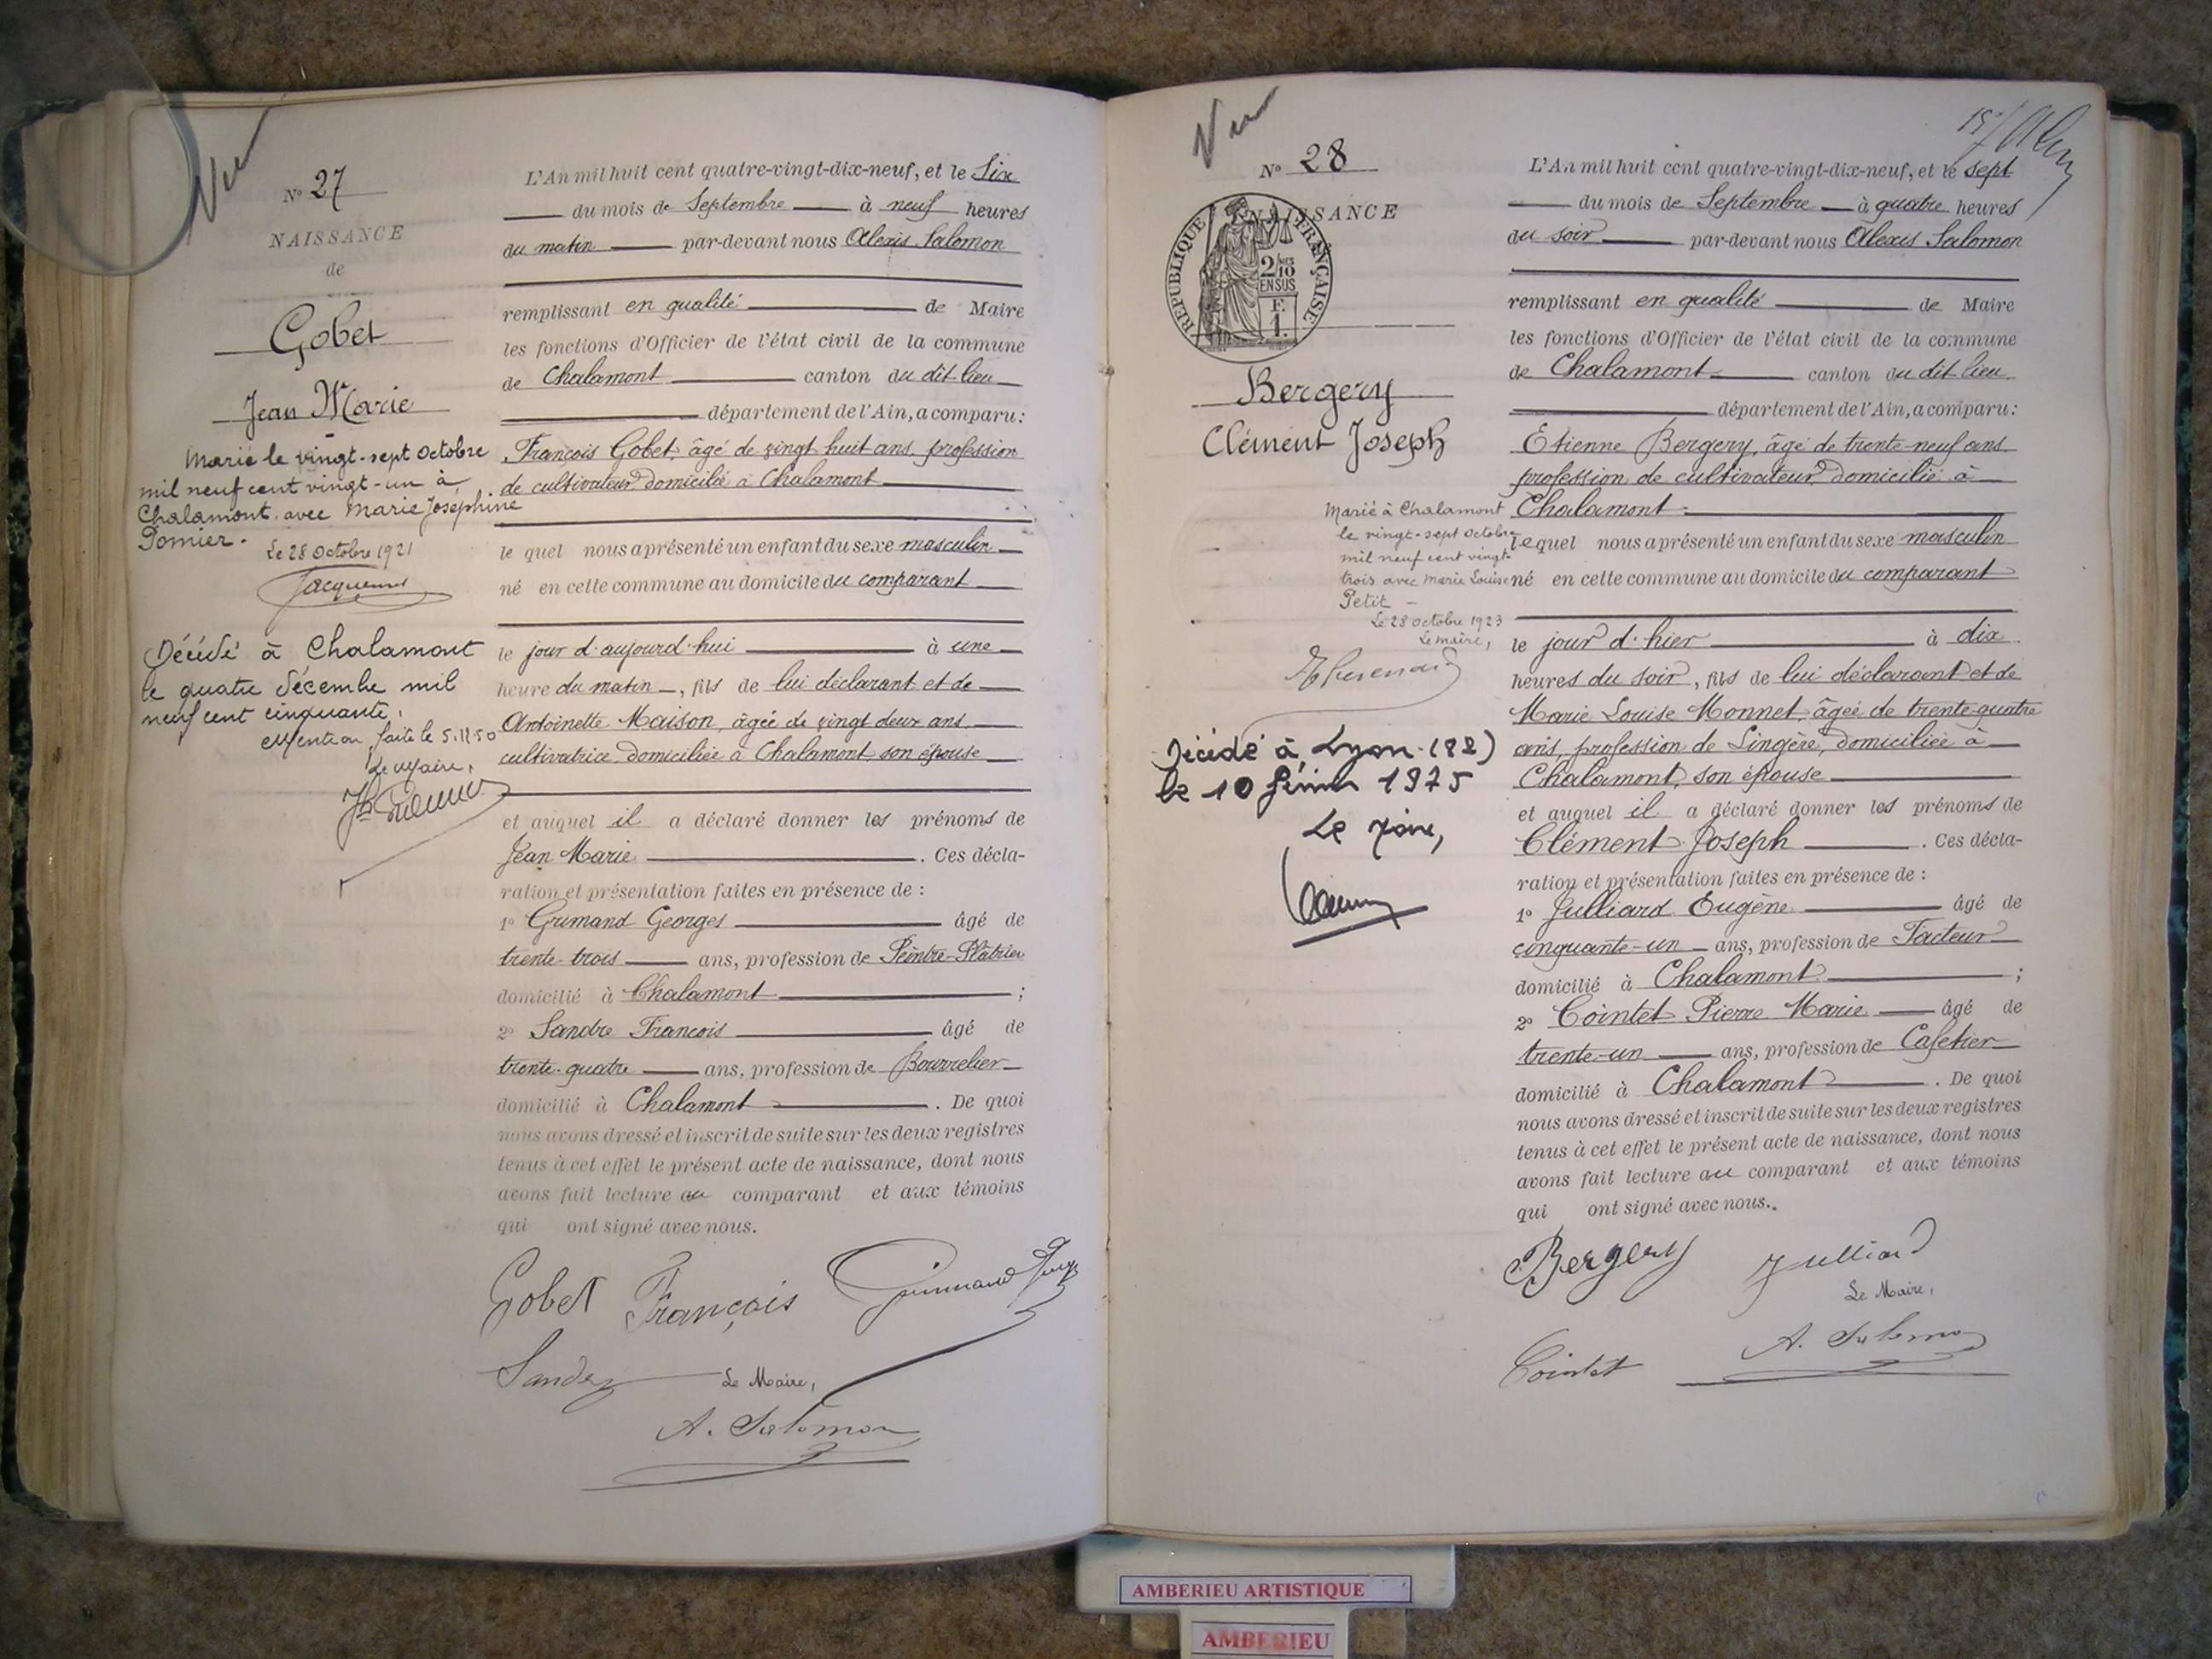 Vu
N° 27
NAISSANCE
de
Gobet
Jean Marie
Marié le vingt-sept Octobre
mil neuf cent vingt-un à
Chalamont avec Marie Joséphine
Pomier.
Le 28 Octobre 1921
Décédé à Chalamont
le quatre décembre mil
neuf cent cinquante.
Mention faite le 5.12.50
Le Maire,
L'An mil huit cent quatre-vingt-dix-neuf, et le Six
du mois de Septembre à neuf heures
du matin par-devant nous Alexis Salomon
remplissant en qualité de Maire
les fonctions d'Officier de l'état civil de la commune
de Chalamont canton du dit lieu
département de l'Ain, a comparu:
François Gobet, âgé de vingt huit ans, profession
de cultivateur domicilié à Chalamont
le quel nous a présenté un enfant du sexe masculin
né en cette commune au domicile du comparant
le jour d'aujourd'hui à une
heure du matin, fils de lui déclarant et de
Antoinette Maison, âgée de vingt deux ans,
cultivatrice domiciliée à Chalamont, son épouse
et auquel il a déclaré donner les prénoms de
Jean Marie. Ces décla-
ration et présentation faites en présence de :
1° Grimand Georges âgé de
trente-trois ans, profession de Peintre-Plâtrier
domicilié à Chalamont ;
2° Sandre François âgé de
trente-quatre ans, profession de Bourrelier
domicilié à Chalamont. De quoi
nous avons dressé et inscrit de suite sur les deux registres
tenus à cet effet le présent acte de naissance, dont nous
avons fait lecture au comparant et aux témoins
qui ont signé avec nous.
Gobet François Grimand
Sandre Le Maire,
A. Salomon
Vu
N° 28
NAISSANCE
REPUBLIQUE FRANÇAISE
2/10 MES
EN SUS
F.
1.
Bergery
Clément Joseph
Marié à Chalamont
le vingt-sept Octobre
mil neuf cent vingt-
trois avec Marie Louise
Petit -
Le 28 octobre 1923
Le maire,
Décédé à Lyon (8e)
le 10 février 1975
Le Maire,
15
L'An mil huit cent quatre-vingt-dix-neuf, et le sept
du mois de Septembre à quatre heures
du soir par-devant nous Alexis Salomon
remplissant en qualité de Maire
les fonctions d'Officier de l'état civil de la commune
de Chalamont canton du dit lieu
département de l'Ain, a comparu:
Etienne Bergery, âgé de trente-neuf ans,
profession de cultivateur, domicilié à
Chalamont
le quel nous a présenté un enfant du sexe masculin
né en cette commune au domicile du comparant
le jour d'hier à dix
heures du soir, fils de lui déclarant et de
Marie Louise Monnet, âgée de trente-quatre
ans, profession de Lingère, domiciliée à
Chalamont, son épouse
et auquel il a déclaré donner les prénoms de
Clément Joseph. Ces décla-
ration et présentation faites en présence de :
1° Julliard Eugène âgé de
cinquante-un ans, profession de Facteur
domicilié à Chalamont ;
2° Cointet Pierre Marie âgé de
trente-un ans, profession de Cafetier
domicilié à Chalamont. De quoi
nous avons dressé et inscrit de suite sur les deux registres
tenus à cet effet le présent acte de naissance, dont nous
avons fait lecture au comparant et aux témoins
qui ont signé avec nous.
Bergery Julliard
Le Maire,
Cointet A. Salomon
AMBERIEU ARTISTIQUE
AMBERIEU